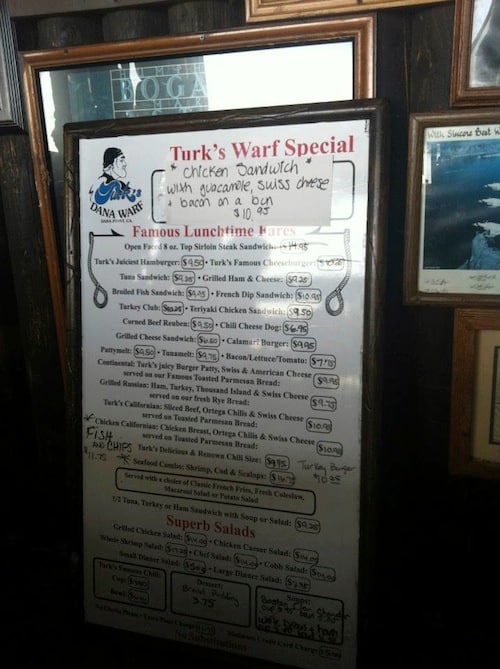 BOGA
With Sincere Best W
Turk's Warf Special
* Chicken Sandwich *
with guacamole, swiss cheese
+ bacon on a bun
$10.95
Turk's
DANA WARF
DANA POINT, CA.
Famous Lunchtime Fares
Open Faced 8 oz. Top Sirloin Steak Sandwich: $14.95
Turk's Juiciest Hamburger: $9.50 • Turk's Famous Cheeseburger: $10.25
Tuna Sandwich: $9.25 • Grilled Ham & Cheese: $9.25
Broiled Fish Sandwich: $9.95 • French Dip Sandwich: $10.95
Turkey Club: $10.25 • Teriyaki Chicken Sandwich: $9.50
Corned Beef Reuben: $9.50 • Chili Cheese Dog: $6.95
Grilled Cheese Sandwich: $6.50 • Calamari Burger: $9.95
Pattymelt: $9.50 • Tunamelt: $9.75 • Bacon/Lettuce/Tomato: $7.75
Continental: Turk's juicy Burger Patty, Swiss & American Cheese
served on our Famous Toasted Parmesan Bread: $9.95
Grilled Russian: Ham, Turkey, Thousand Island & Swiss Cheese
served on our fresh Rye Bread: $9.75
Turk's Californian: Sliced Beef, Ortega Chilis & Swiss Cheese
served on Toasted Parmesan Bread: $10.95
* Chicken Californian: Chicken Breast, Ortega Chilis & Swiss Cheese
served on Toasted Parmesan Bread: $10.95
FISH
AND CHIPS
$11.75
Turk's Delicious & Renown Chili Size: $9.95
Turkey Burger
Seafood Combo: Shrimp, Cod & Scallops:
Served with a choice of Classic French Fries, Fresh Coleslaw,
Macaroni Salad or Potato Salad
1/2 Tuna, Turkey or Ham Sandwich with Soup or Salad: $9.25
Superb Salads
Grilled Chicken Salad: • Chicken Caesar Salad:
Whole Shrimp Salad: • Chef Salad: • Cobb Salad:
Small Dinner Salad: • Large Dinner Salad:
Turk's Famous Chili:
Cup:
Bowl:
Dessert:
Bread Pudding
3.75
Soups:
Boston Clam Chowder
No Checks Please • Extra Plate Charge • Minimum Credit Card Charge
No Substitutions